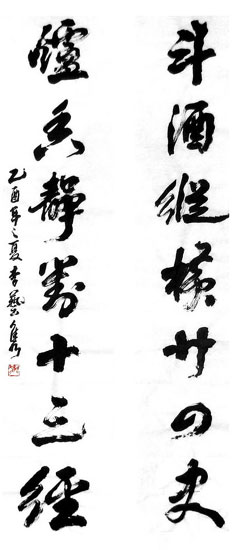 斗酒纵横廿四史
炉香静对十三经
乙酉年之夏李艺隽